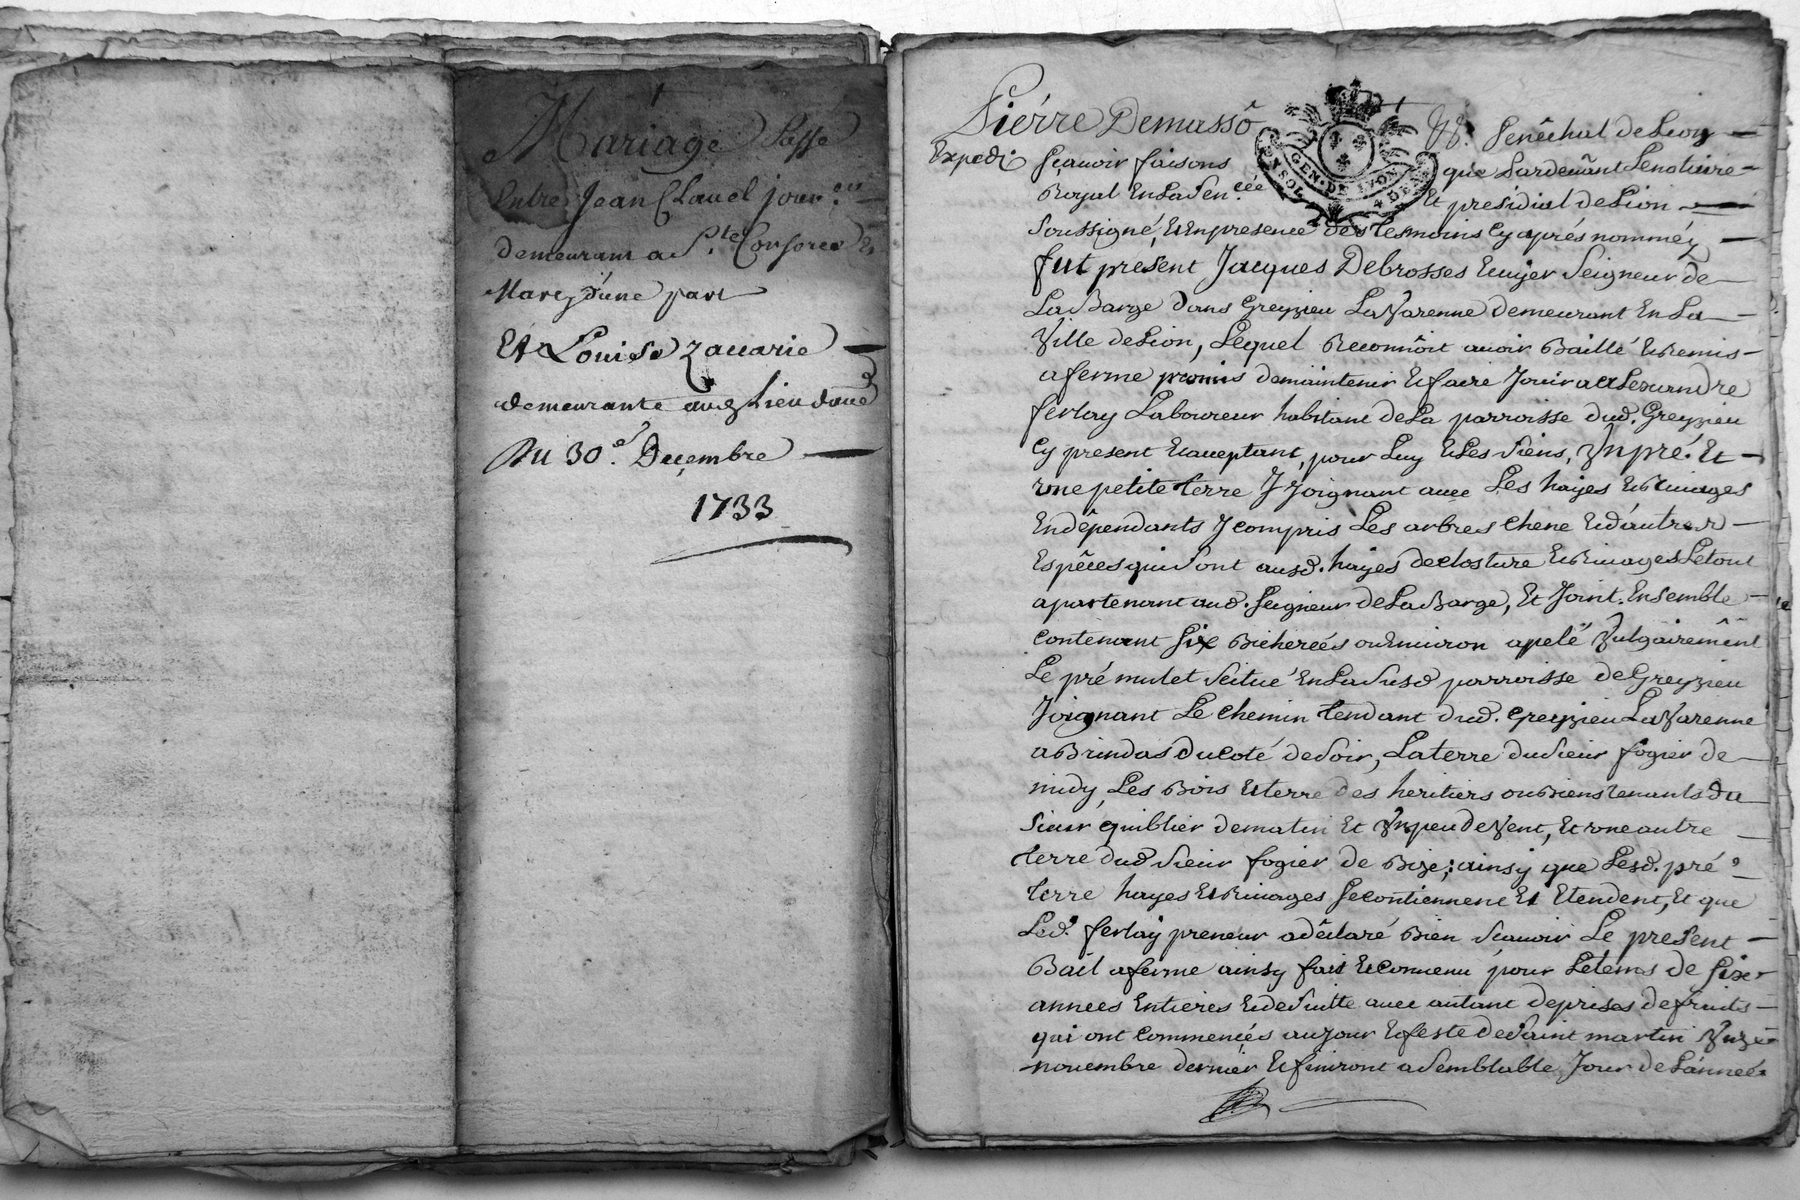 Mariage Passé
Entre Jean Clavel jour.er
demeurant a S.te Consorce Et
Marcy d'une part
Et Louise Zacarie
demeurante aud. Lieu d'autre
Du 30e. Deçembre
1733
Piérre Demassô
Senêchal de Lion
Expedi
sçavoir faisons
que Pardevant Le notaire
Royal En La Sen.cée
Et présidial de Lion
GEN. DE LYON
4 DEN
Soussigné, Et En presence des tesmoins Cy aprés nomméz
fut present Jacques Debrosses Ecuyer Seigneur de
La Barge dans Greyzieu La Varenne demeurant En La
Ville de Lion, Lequel Reconnôit avoir Baillé Et Remis
a ferme promis de maintenir Et faire Jouir a Alexandre
ferlay Laboureur habitant de La parroisse dud. Greyzieu
Cy present Et acceptant, pour Luy Et Les Siens, Vn pré. Et
vne petite terre J Joignant avec Les hayes Et Rivages
En dêpendants J compris Les arbres chene Et d'autres
Espêces qui Sont ausd. hayes de closture Et Rivages Le tout
apartenant aud. Seigneur de La Barge, Et Joint Ensemble
contenant Six Bicherées ou Environ apelé Vulgairemênt
Le pré mulet Scitué En La Susd parroisse de Greyzieu
Joignant Le chemin tendant dud. Greyzieu La Varenne
a Brindas du Coté de Soir, La terre du Sieur fogier de
midy, Les Bois Et terre des heritiers ou Biens tenants du
Sieur quiblier de matin Et Vn peu de Vent, Et vne autre
terre dud Sieur fogier de Bize; ainsy que Lesd. pré
terre hayes Et Rivages Se contiennent Et Etendent, Et que
Led. ferlay preneur a déclaré Bien Sçavoir Le present
Bail a ferme ainsy fait Et Convenu pour Le tems de Six
années Entieres Et de Suitte avec autant de prises de fruits
qui ont Commencés au jour Et feste de Saint martin Vnze
novembre dernier Et finiront a Semblable Jour de L'année